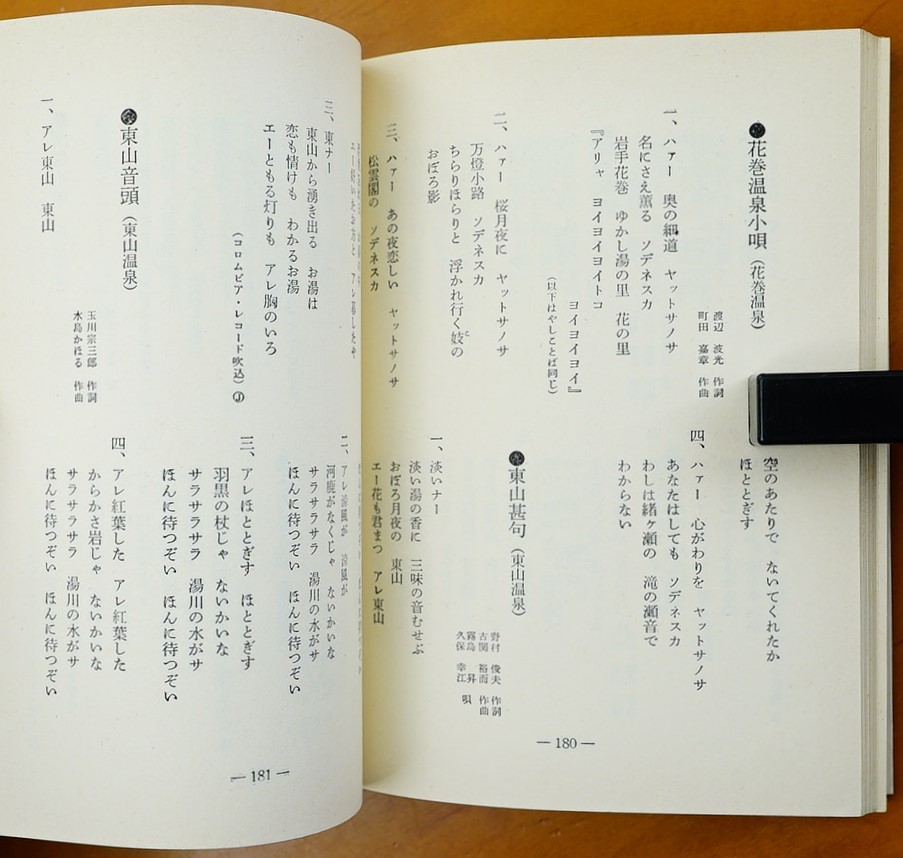 ●花巻温泉小唄（花巻温泉）
渡辺 波光 作詞
町田 嘉章 作曲
一、ハァー 奥の細道 ヤットサノサ
名にさえ薫る ソデネスカ
岩手花巻 ゆかし湯の里 花の里
『アリャ ヨイヨイヨイトコ
ヨイヨイヨイ』
（以下はやしことば同じ）
二、ハァー 桜月夜に ヤットサノサ
万燈小路 ソデネスカ
ちらりほらりと 浮かれ行く妓の
おぼろ影
三、ハァー あの夜恋しい ヤットサノサ
松雲閣の ソデネスカ
空のあたりで ないてくれたか
ほととぎす
四、ハァー 心がわりを ヤットサノサ
あなたはしても ソデネスカ
わしは緒ヶ瀬の 滝の瀬音で
わからない
●東山甚句（東山温泉）
野村 俊夫 作詞
古関 裕而 作曲
霧島 昇
久保 幸江 唄
一、淡いナー
淡い湯の香に 三味の音むせぶ
おぼろ月夜の 東山
エー花も君まつ アレ東山
― 180 ―
三、東ナー
東山から湧き出る お湯は
恋も情けも わかるお湯
エーともる灯りも アレ胸のいろ
（コロムビア・レコード吹込）
●東山音頭（東山温泉）
玉川宗三郎 作詞
水島かほる 作曲
一、アレ東山 東山
二、アレ涼風が 涼風が
河鹿がなくじゃ ないかいな
サラサラサラ 湯川の水がサ
ほんに待つぞい ほんに待つぞい
三、アレほととぎす ほととぎす
羽黒の杖じゃ ないかいな
サラサラサラ 湯川の水がサ
ほんに待つぞい ほんに待つぞい
四、アレ紅葉した アレ紅葉した
からかさ岩じゃ ないかいな
サラサラサラ 湯川の水がサ
ほんに待つぞい ほんに待つぞい
― 181 ―